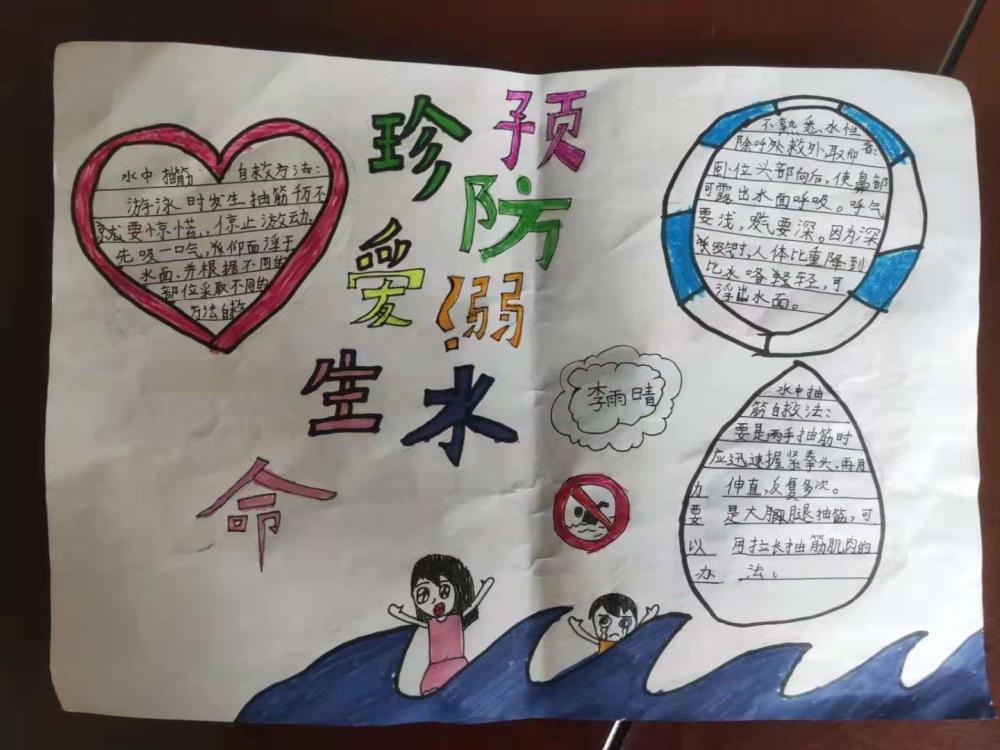 珍爱生命
预防溺水
水中抽筋 自救方法:
游泳时发生抽筋仍不
就要惊慌,停止游动,
先吸一口气,仰面浮于
水面,并根据不同的
部位采取不同的
方法自救
不熟悉水性
除呼处救外,取仰
卧位头部向后,使鼻部
可露出水面呼吸。呼气
要浅,吸气要深。因为深
吸时,人体比重降到
比水略轻,可
浮出水面。
李雨晴
水中抽
筋自救法:
要是两手抽筋时
应迅速握紧拳头,再用
力 伸直,反复多次。
要 是大腿抽筋,可
以 用拉长抽筋肌肉的
办 法。